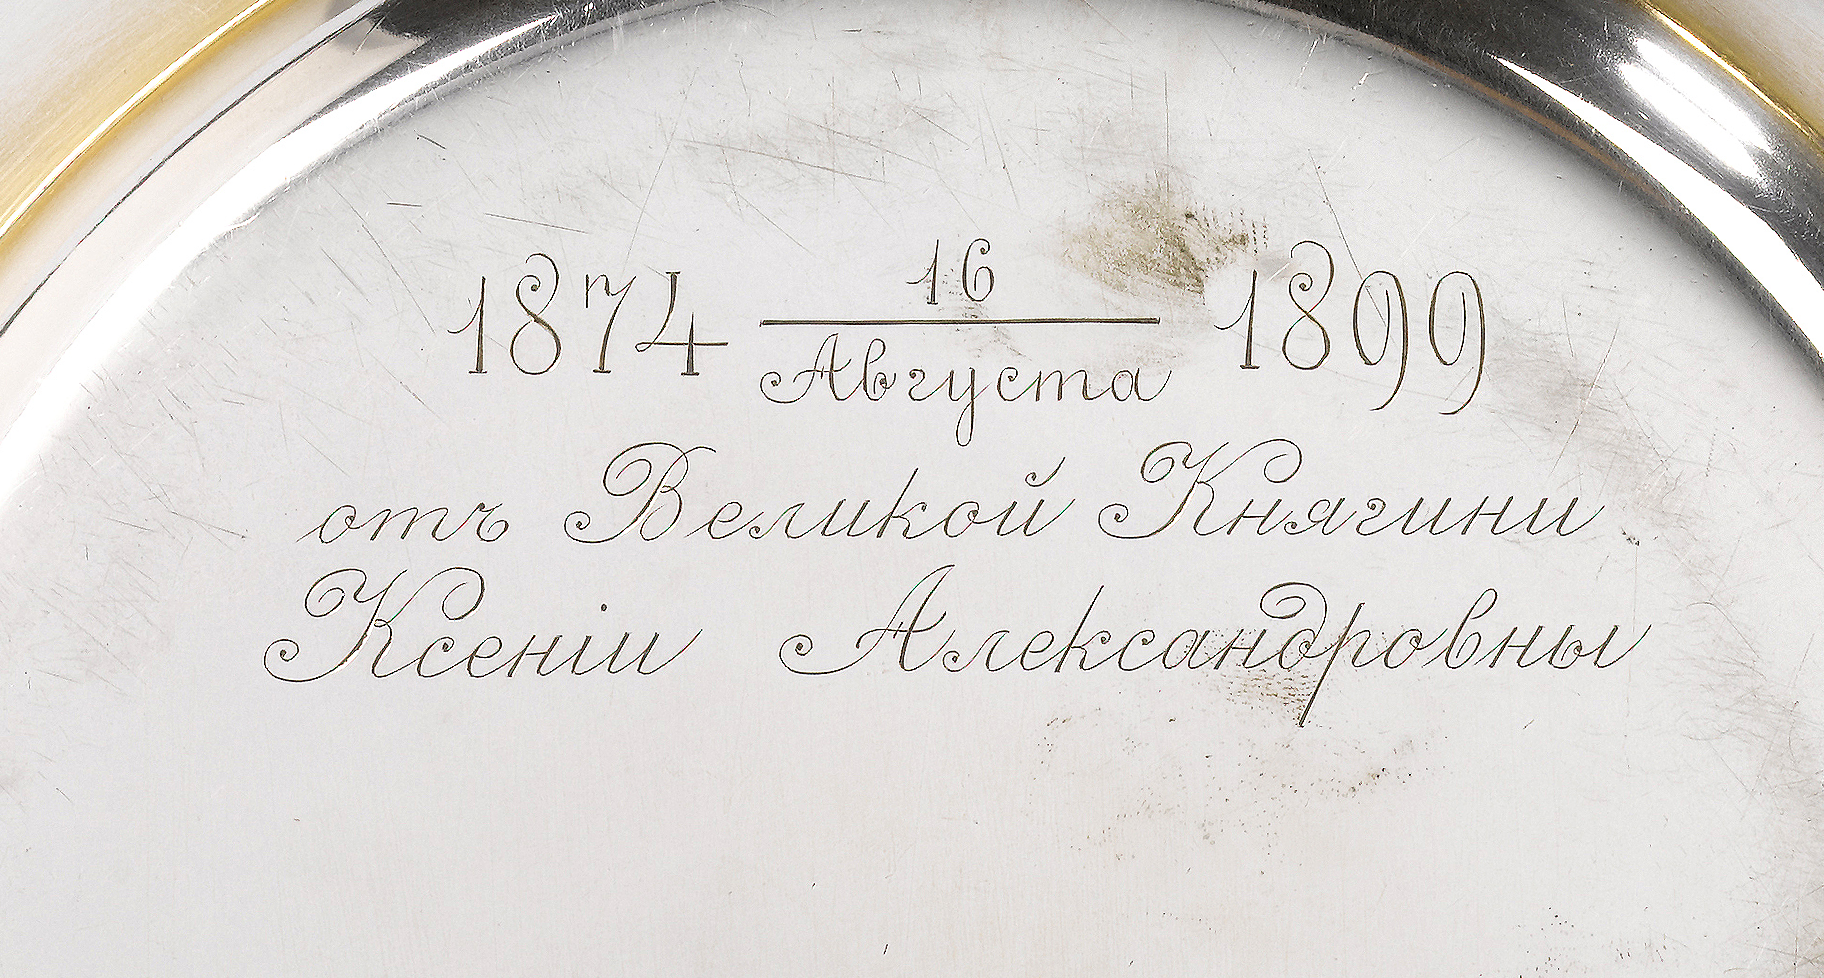 1874 16 Августа 1899
отъ Великой Княгини
Ксеніи Александровны